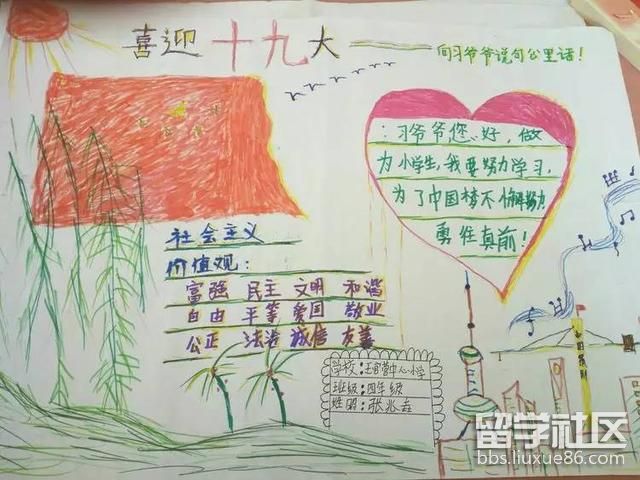 喜迎十九大——向习爷爷说句心里话！
：习爷爷您好，做
为小学生，我要努力学习，
为了中国梦不懈努力
勇往直前！
社会主义
价值观：
富强 民主 文明 和谐
自由 平等 爱国 敬业
公正 法治 诚信 友善
学校：王官营中心小学
班级：四年级
姓名：张兆
留学社区
bbs.liuxue86.com